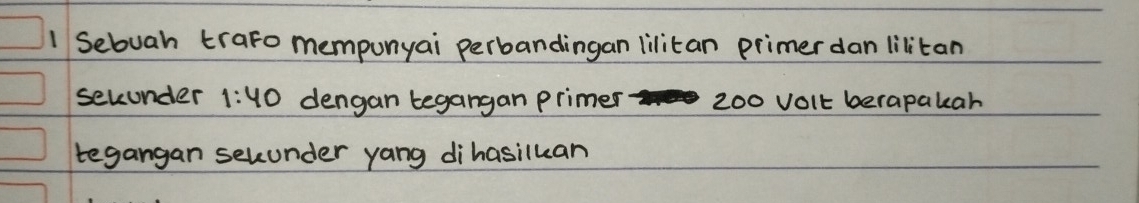 1 Sebuah trafo mempunyai perbandingan lilitan primer dan lilitan
sekunder 1:40 dengan tegangan primer 200 Volt berapakah
tegangan sekunder yang di hasilkan